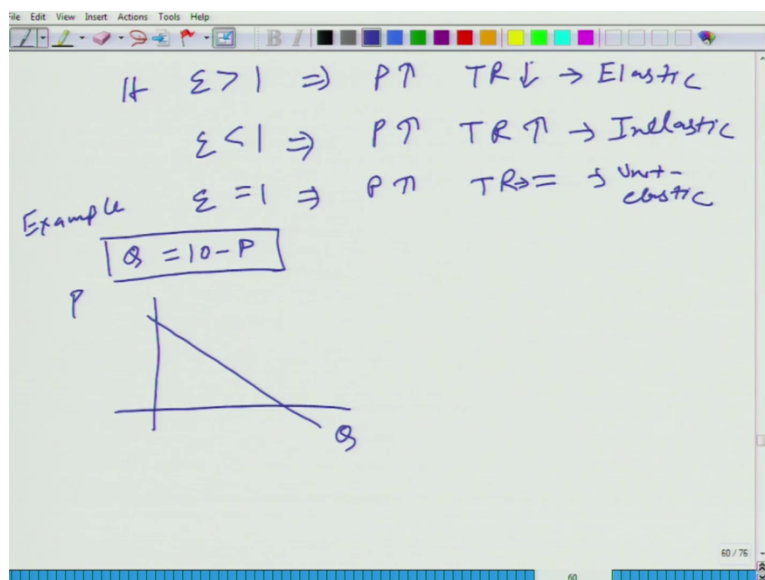 File Edit View Insert Actions Tools Help
B I
If ε > 1 ⇒ P↑ TR↓ → Elastic
ε < 1 ⇒ P↑ TR↑ → Inelastic
ε = 1 ⇒ P↑ TR→= → Unit-
elastic
Example
Q = 10 - P
P
Q
60 / 76
60